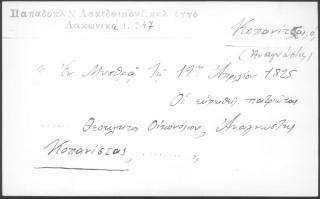 Παπαδοπλ Ν Λακεδαιμον Εκκλ εγγρ
Λακωνικά Ι. 347
Κοπανίτσας, ο
(Αναγνώστης)
Ἐν Μυσθρᾷ τῇ 19ῃ Ἀπριλίου 1825
Οἱ εὐπειθεῖς πατριῶται
Οἰκονόμου, Ἀναγνώστης
Κοπανίτσας, ........ ,